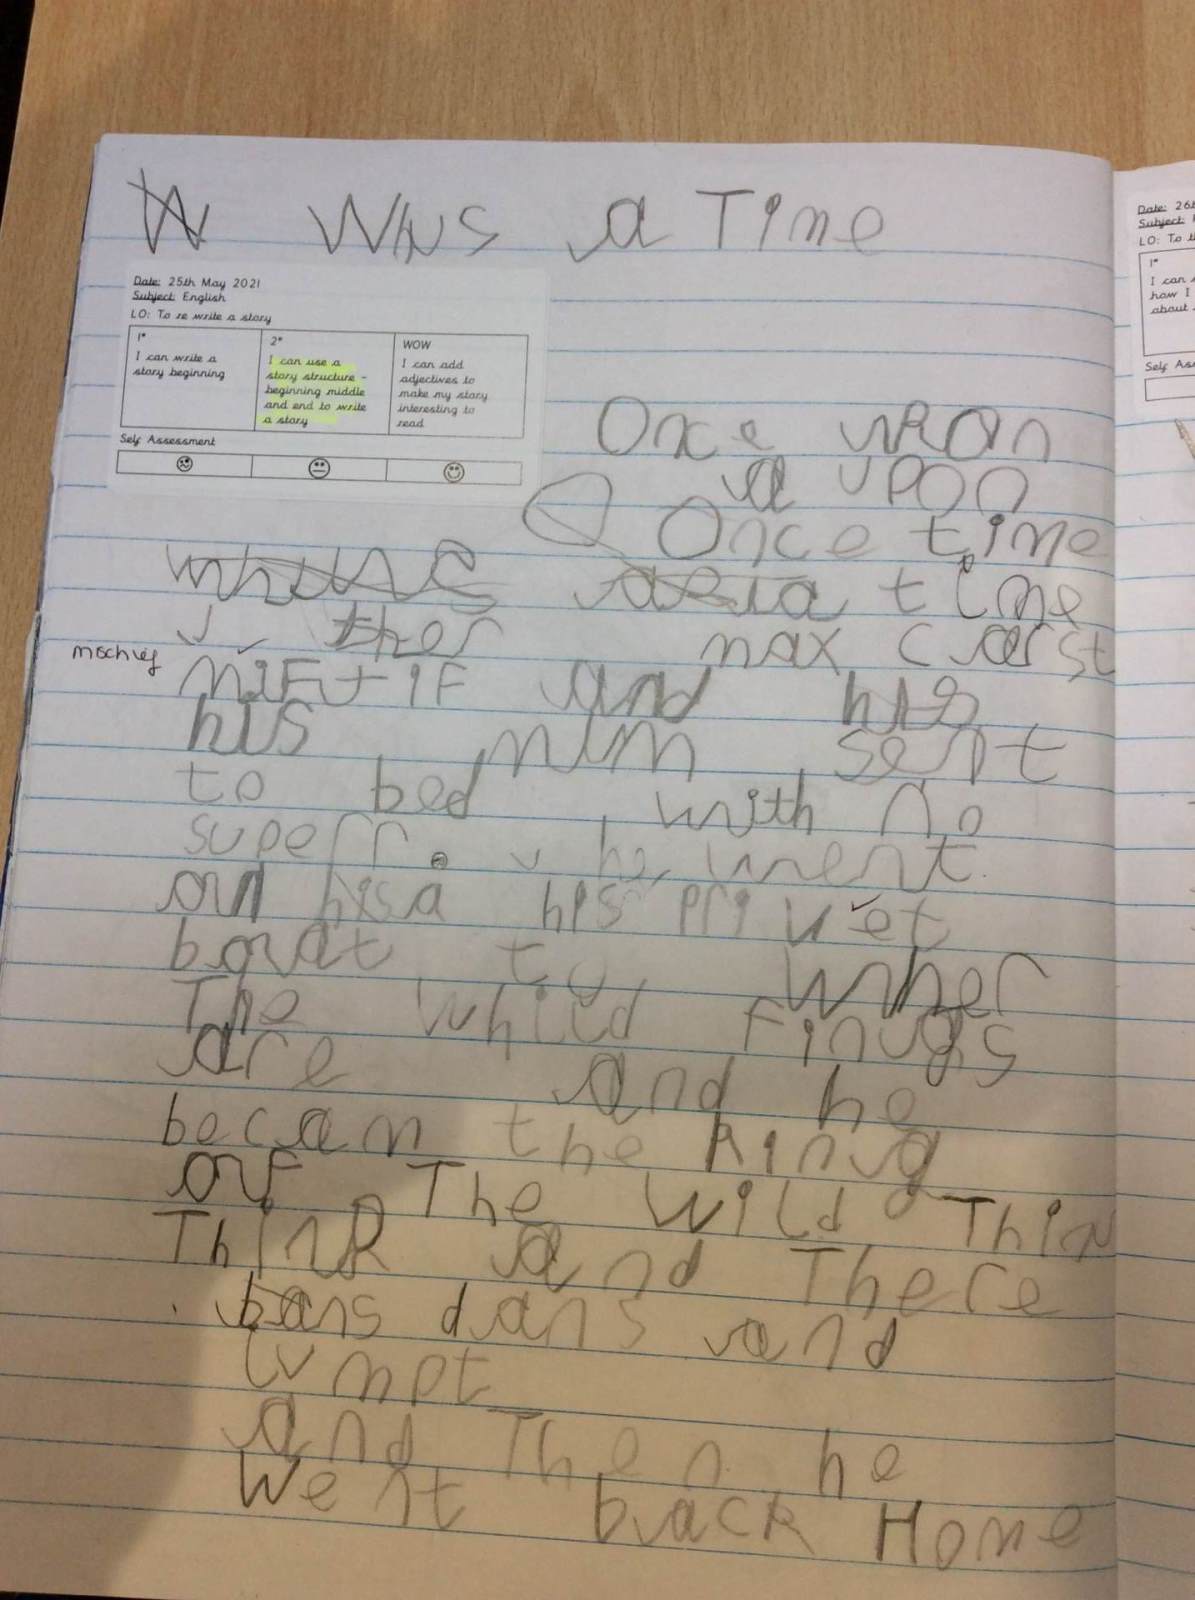 Whs a Time
Date: 25th May 2021
Subject: English
LO: To re write a story
1*
I can write a
story beginning
2*
I can use a
story structure -
beginning middle
and end to write
a story
WOW
I can add
adjectives to
make my story
interesting to
read
Self Assessment
Once upon
a upon
Once time
a time
ther max carst
mischief
miftif and his
his mum sent
to bed with no
superr. he went
on his a his privet
boat to wher
The whild Fings
are and he
becam the king
of The wild Thin
Think and There
bans dans and
Jumpt
and Then he
Went back Home
Date: 26t
Subject:
LO: To
1*
I can
how I
about
Self Ass